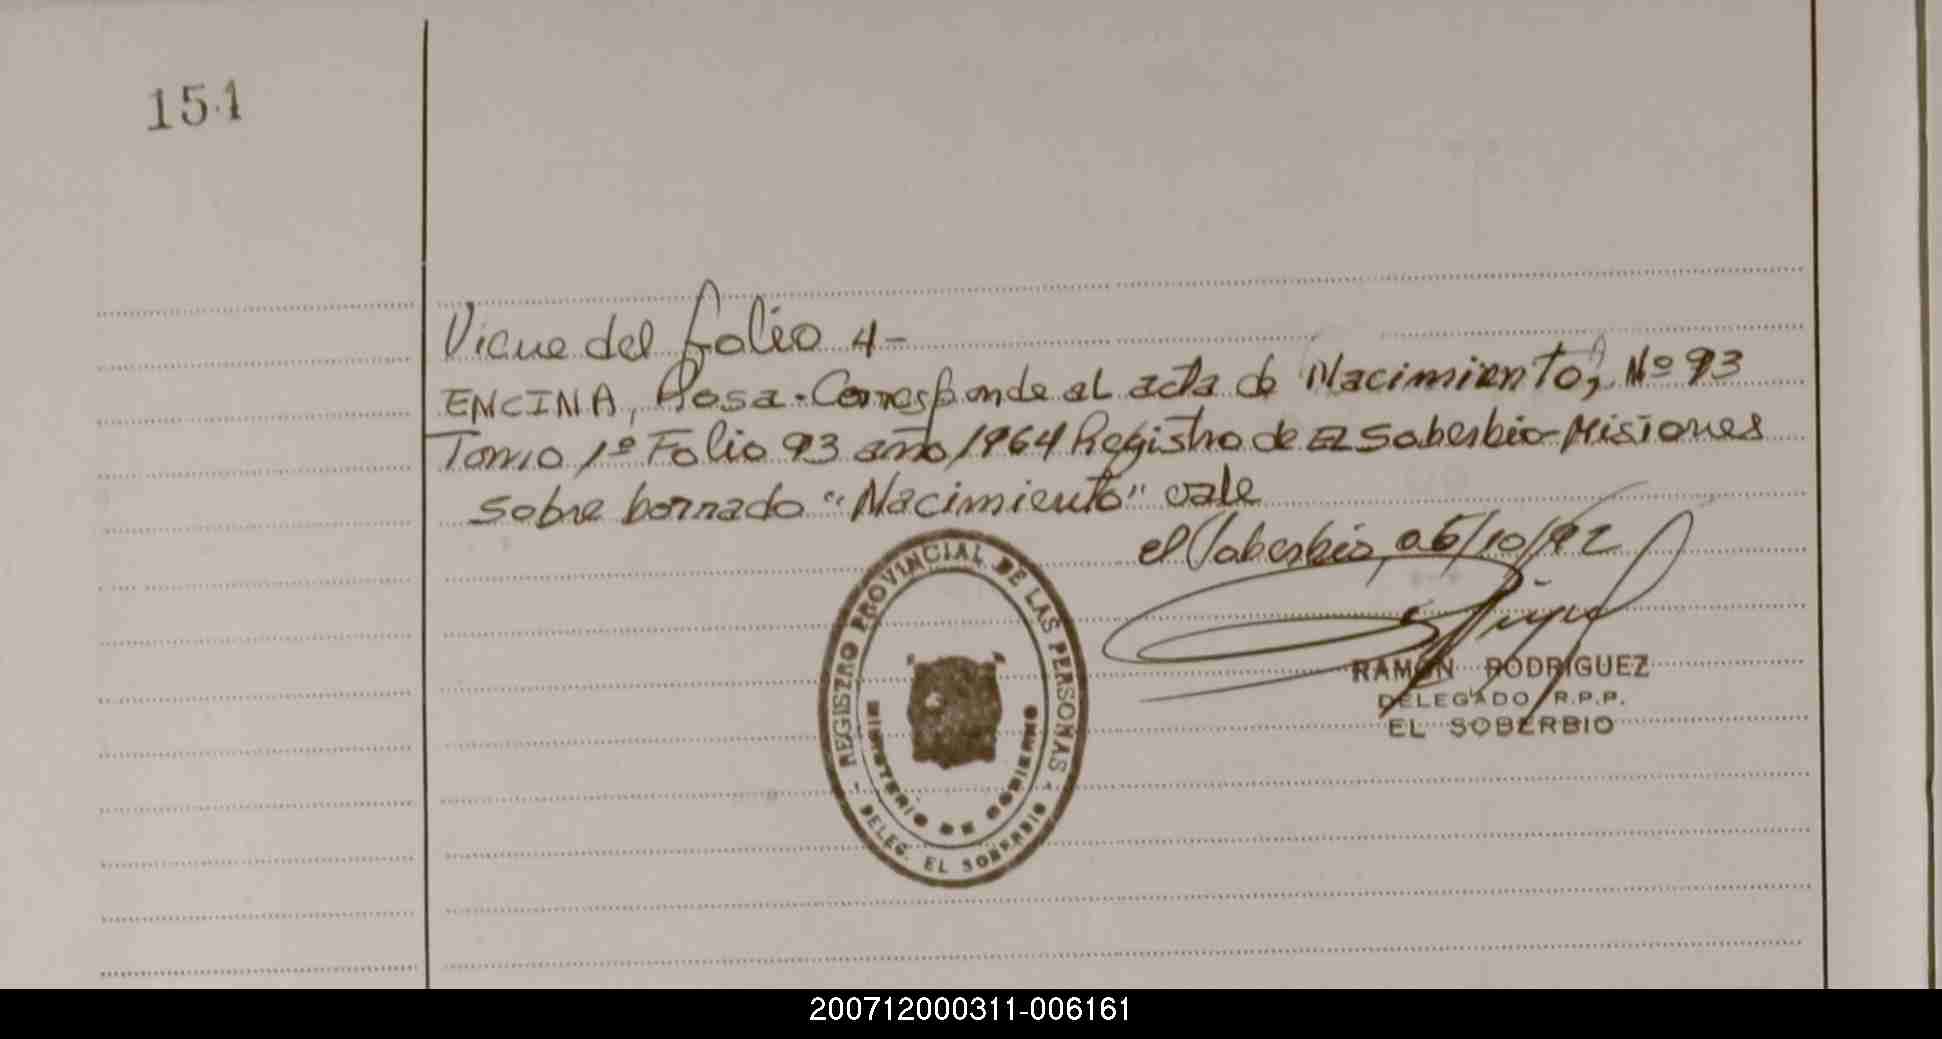 151
Viene del folio 4-
ENCINA, Rosa. Corresponde al acta de Nacimiento, Nº 93
Tomo 1º Folio 93 año 1964 Registro de El Soberbio-Misiones
sobre borrado "Nacimiento" vale
el Soberbio, 05/10/92
REGISTRO PROVINCIAL DE LAS PERSONAS
MINISTERIO DE GOBIERNO
DELEG. EL SOBERBIO
RAMON RODRIGUEZ
DELEGADO R.P.P.
EL SOBERBIO
200712000311-006161